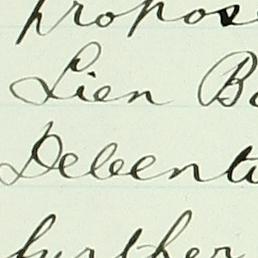 propos
Lien Bo
Debentu
further